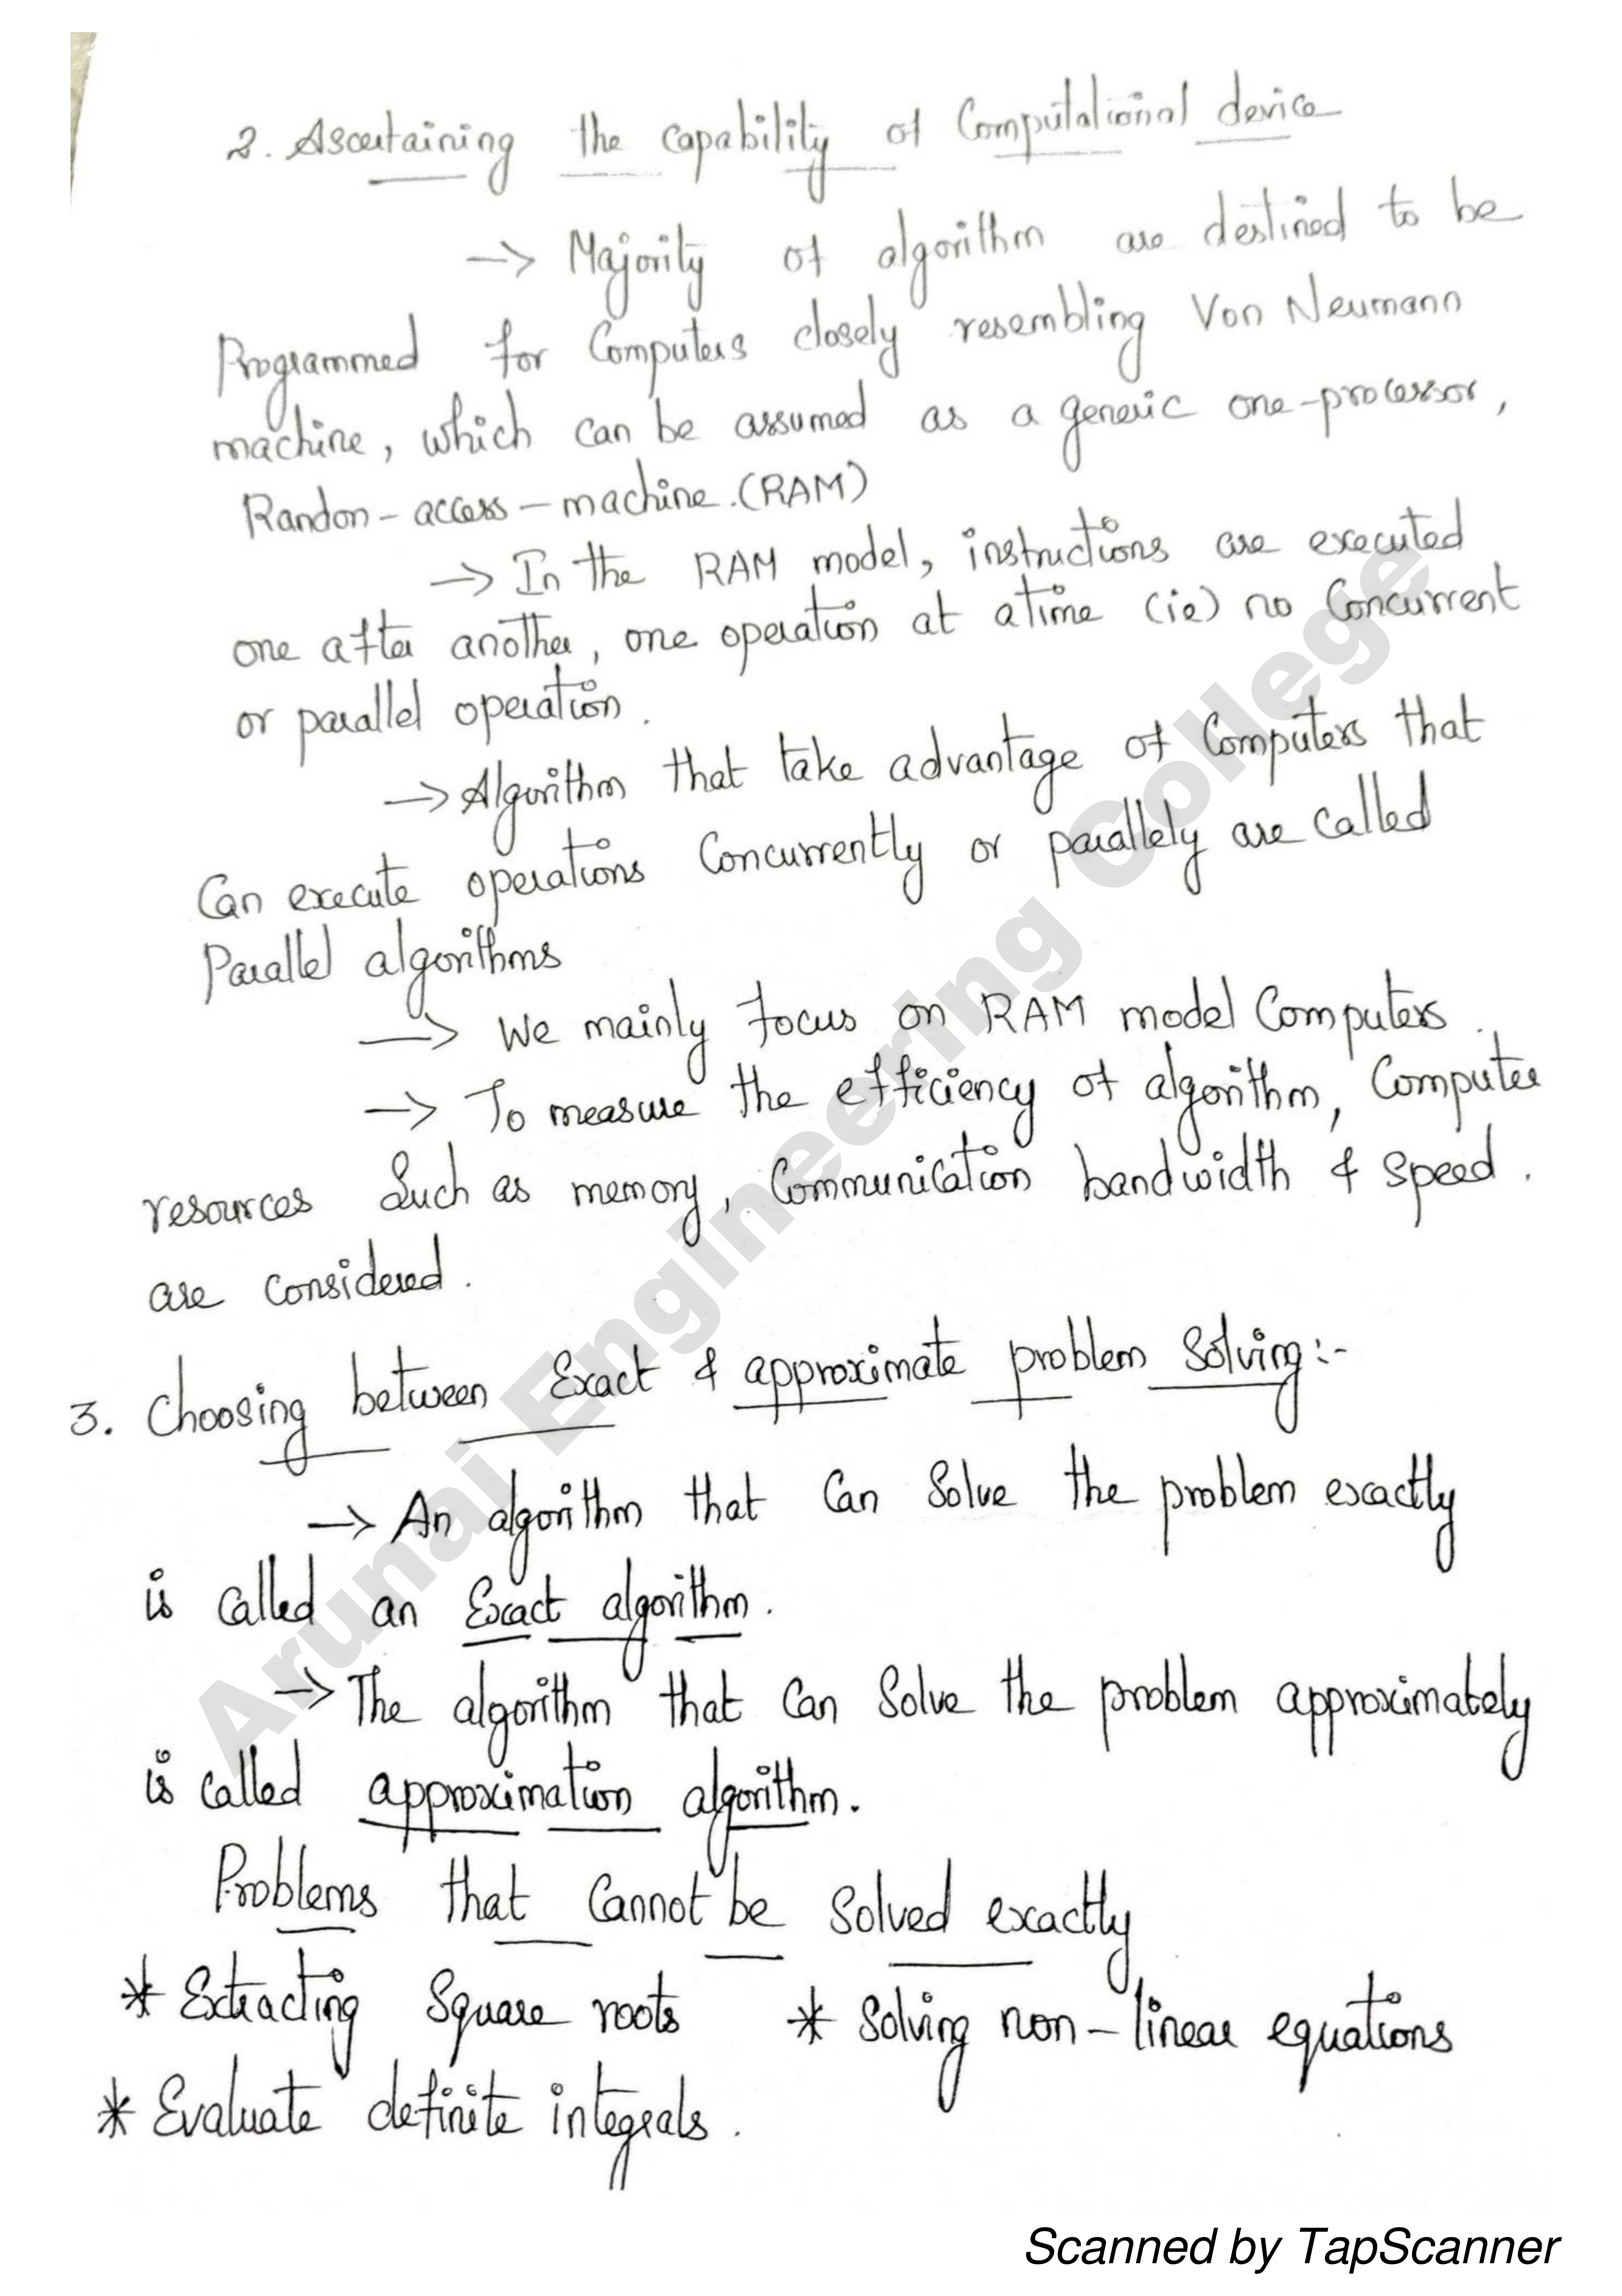 2. Ascertaining the capability of Computational device
→ Majority of algorithm are destined to be
Programmed for Computers closely resembling Von Neumann
machine, which can be assumed as a generic one-processor,
Randon-access-machine.(RAM)
→ In the RAM model, instructions are executed
one after another, one operation at atime (ie) no Concurrent
or parallel operation.
→ Algorithm that take advantage of Computers that
Can execute operations Concurrently or parallely are called
Parallel algorithms
→ We mainly focus on RAM model Computers.
→ To measure the efficiency of algorithm, Computer
resources Such as memory, Communication bandwidth & speed.
are considered.
3. Choosing between Exact & approximate problem Solving:-
→ An algorithm that Can Solve the problem exactly
is called an Exact algorithm.
→ The algorithm that Can Solve the problem approximately
is called approximation algorithm.
Problems that Cannot be Solved exactly
* Extracting Square roots * Solving non-linear equations
* Evaluate definite integrals.
Arunai Engineering College
Scanned by TapScanner